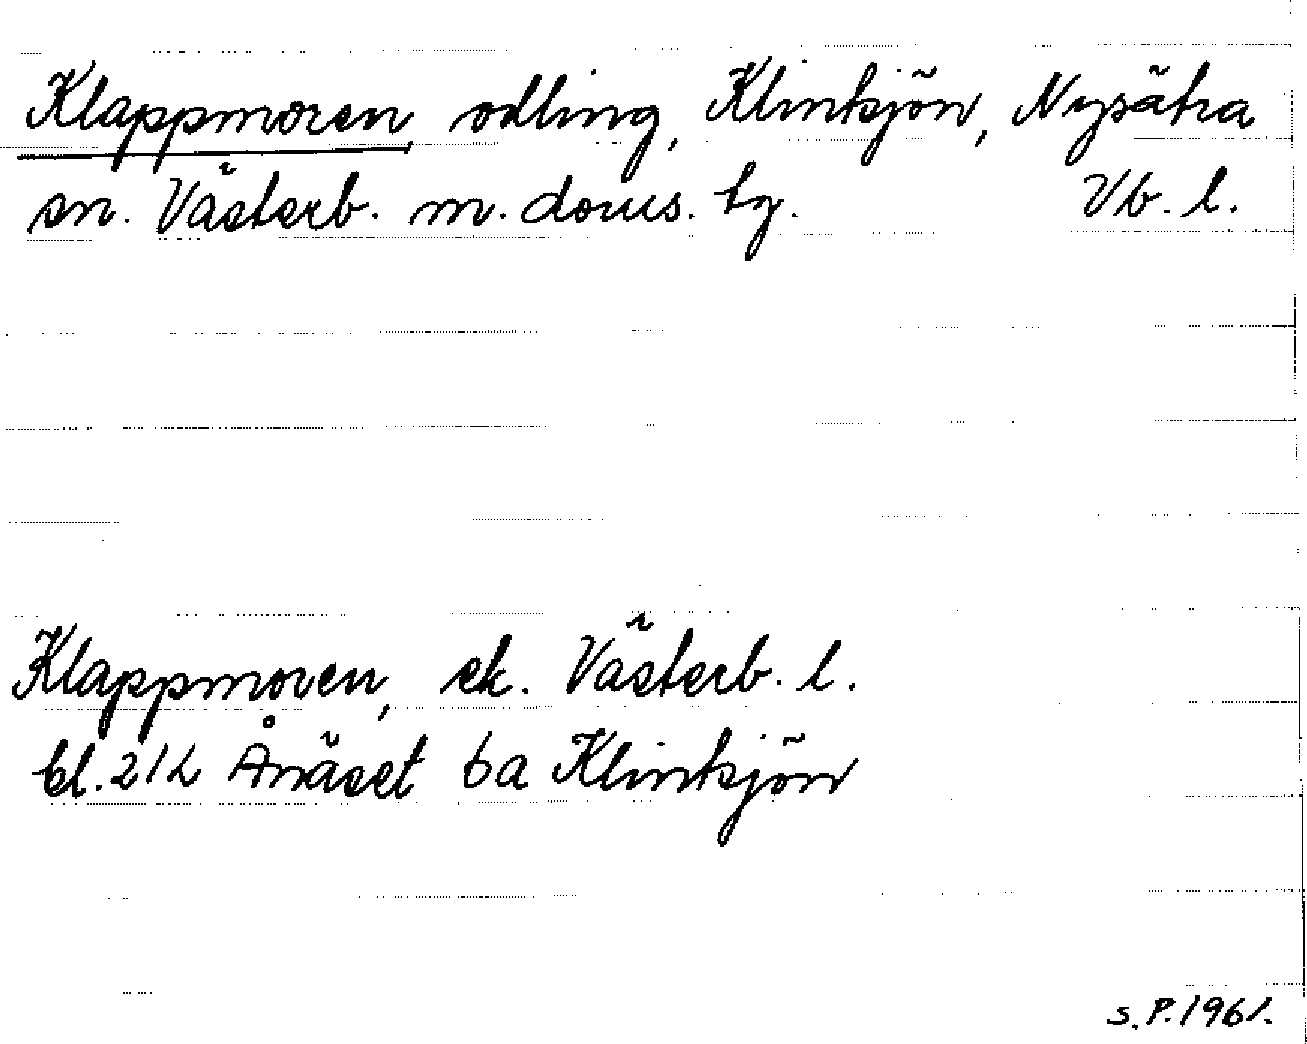 Klappmoren odling, Klintsjön, Nysätra
sn. Västerb. m. doms. tg. Vb. l.
Klappmoren, ek. Västerb. l.
bl. 212 Ånäset 6a Klintsjön
s. P. 1961.